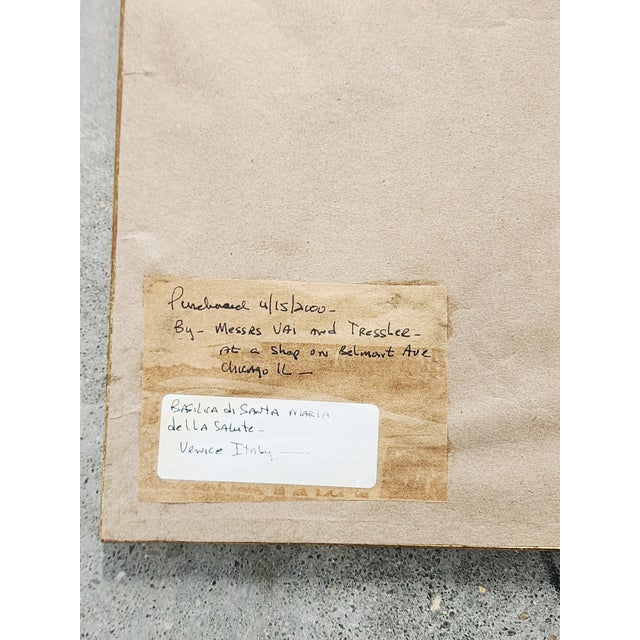 Purchased 4/15/2000-
By- Messrs VAI and Tressler-
At a shop on Belmont Ave
Chicago IL -
Basilica di Santa Maria
della Salute-
Venice Italy -